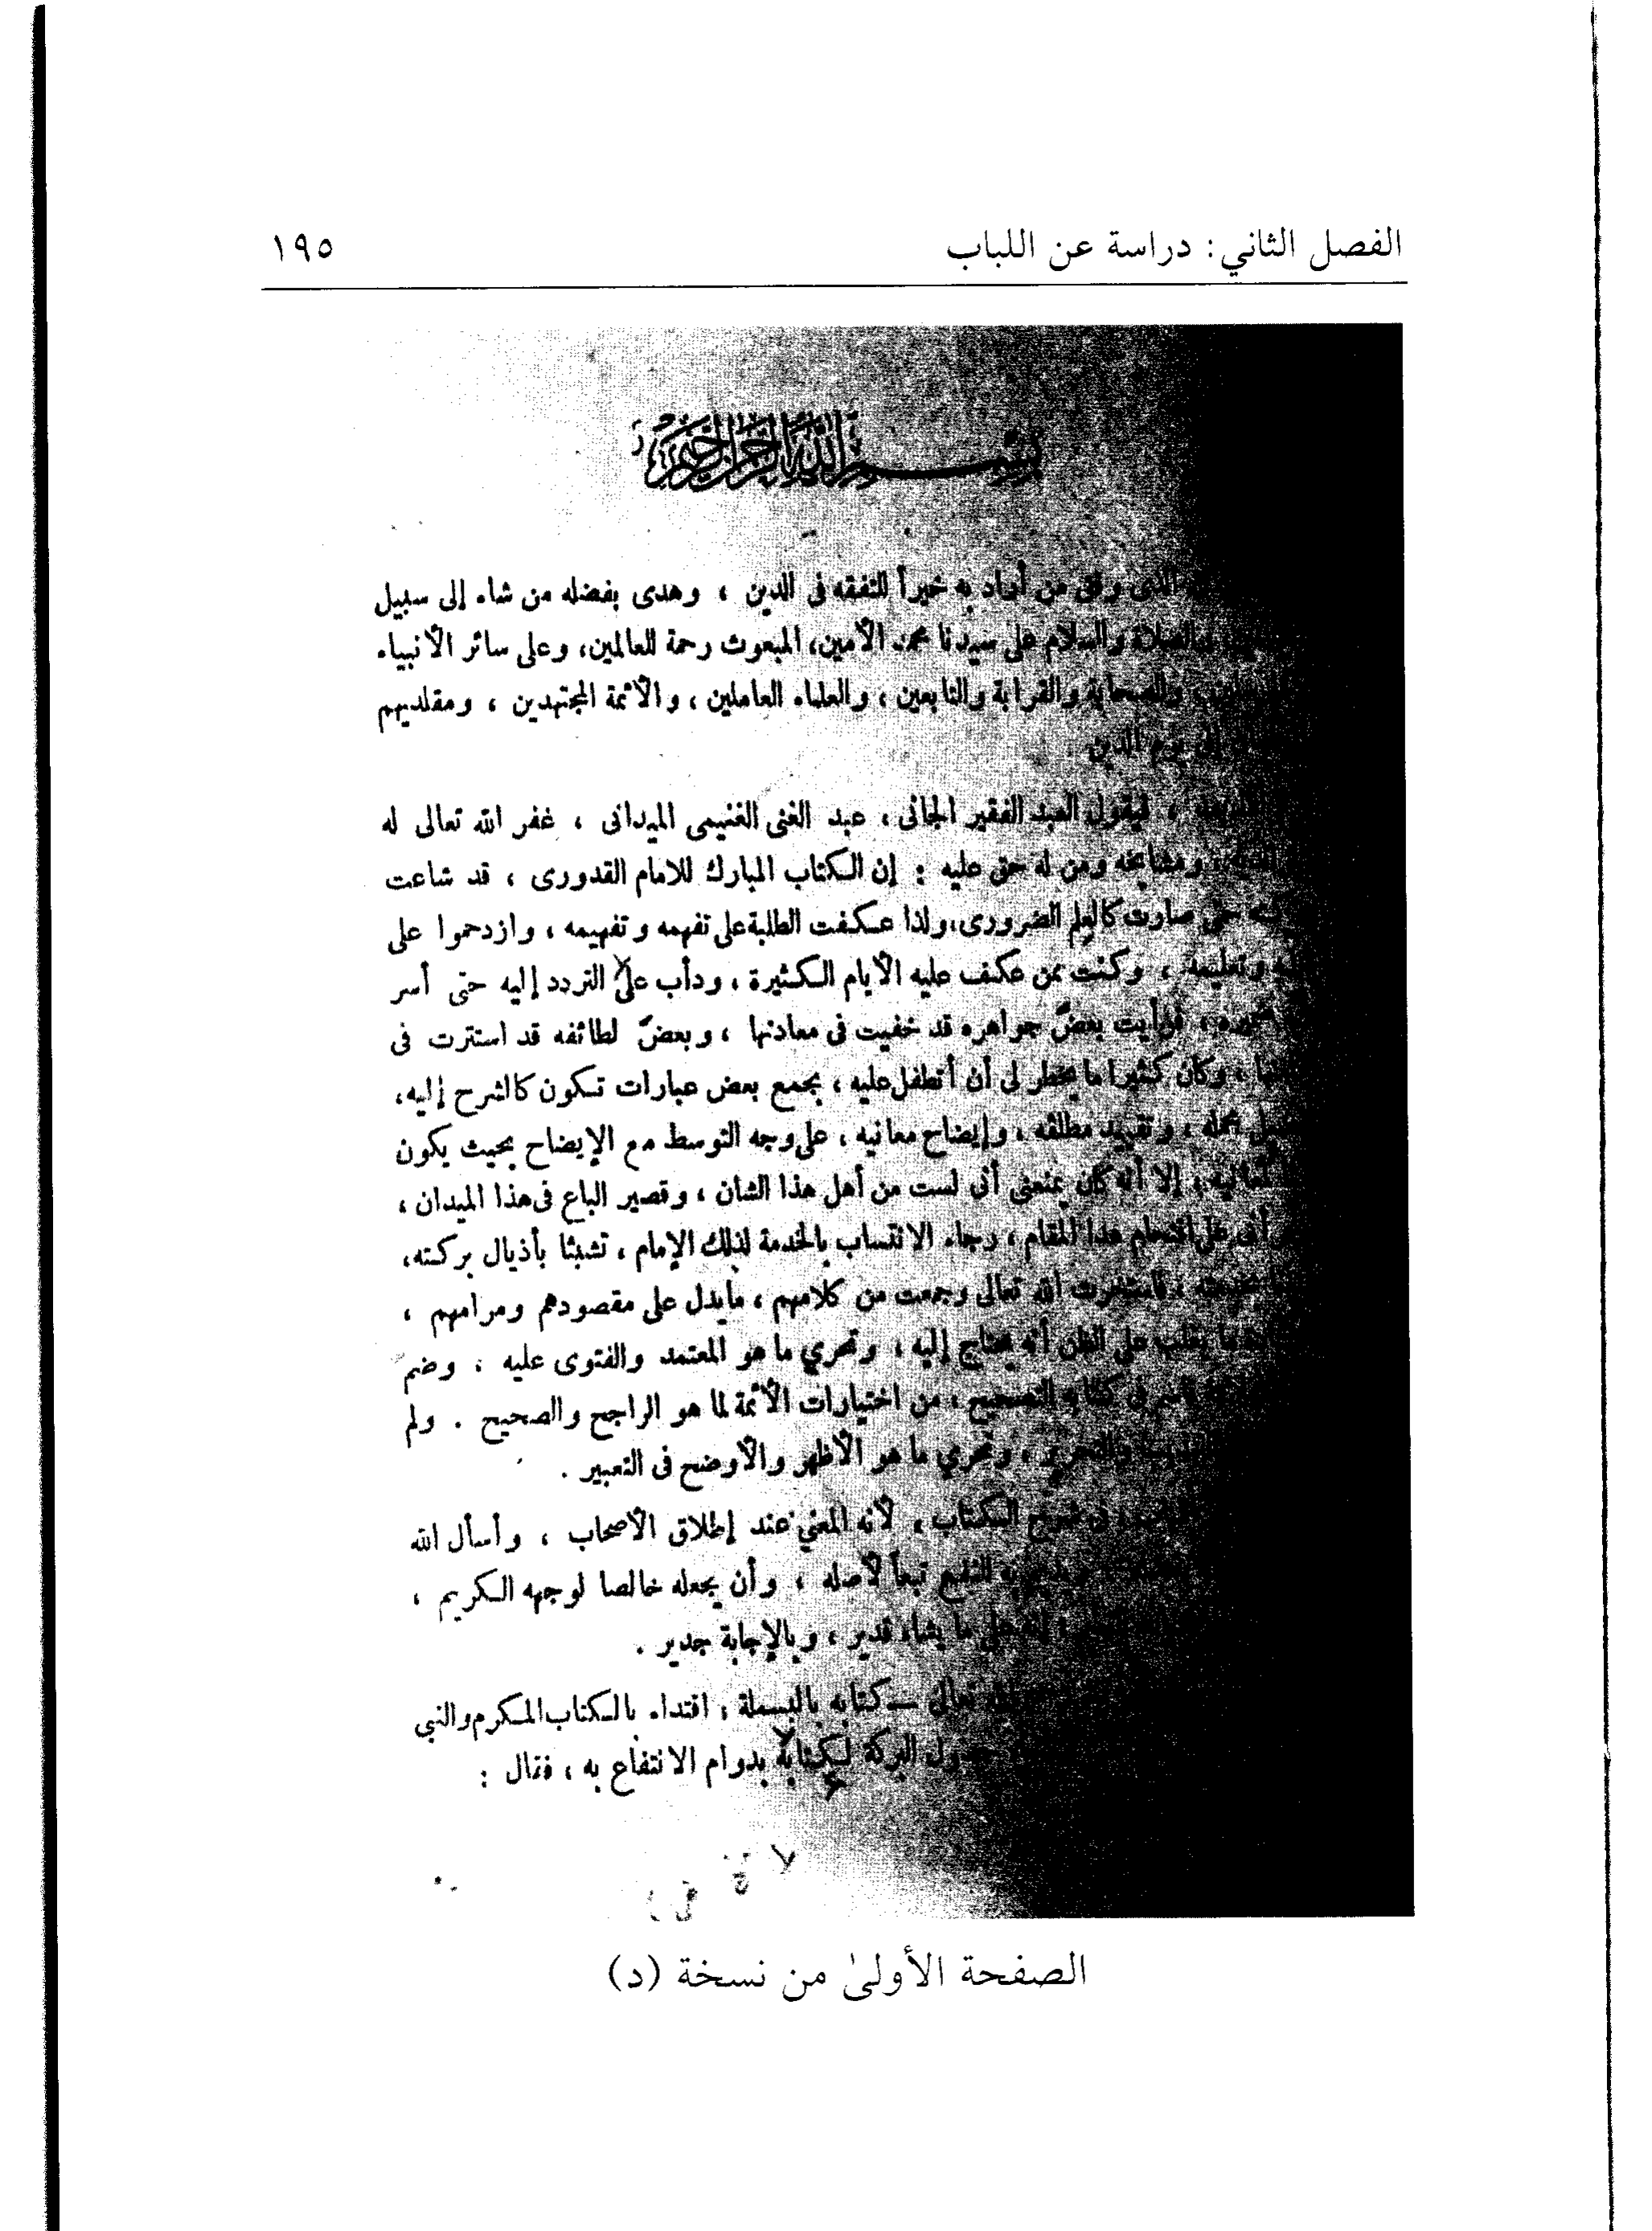 الفصل الثاني: دراسة عن اللباب
١٩٥
بسم الله الرحمن الرحيم
الذى وفق من أراد به خيراً للتفقه فى الدين ، وهدى بفضله من شاء إلى سبيل
والصلاة والسلام على سيدنا محمد الأمين، المبعوث رحمة للعالمين، وعلى سائر الأنبياء
والصحابة والقرابة والتابعين ، والعلماء العاملين ، والأئمة المجتهدين ، ومقلديهم
إلى يوم الدين .
، فيقول العبد الفقير الجانى ، عبد الغنى الغنيمى الميدانى ، غفر الله تعالى له
ومشايخه ومن له حق عليه : إن الكتاب المبارك للامام القدورى ، قد شاعت
حتى صارت كالعلم الضرورى، ولذا عكفت الطلبة على تفهمه وتفهيمه ، وازدحموا على
وتعليمه ، وكنت ممن عكف عليه الأيام الكثيرة ، ودأب على التردد إليه حتى أسر
، فرأيت بعضَ جواهره قد خفيت فى معادنها ، وبعضَ لطائفه قد استترت فى
، وكان كثيرا ما يخطر لى أن أتطفل عليه ، بجمع بعض عبارات تكون كالشرح إليه،
مجمله ، وتقييد مطلقه ، وإيضاح معانيه ، على وجه التوسط مع الإيضاح بحيث يكون
لمعانيه ، إلا أنه كان يمنعنى أنى لست من أهل هذا الشان ، وقصير الباع فى هذا الميدان ،
أنى على اقتحام هذا المقام ، رجاء الانتساب بالخدمة لذلك الإمام ، تشبثا بأذيال بركته،
، فاستخرت الله تعالى وجمعت من كلامهم ، ما يدل على مقصودهم ومرامهم ،
ما يغلب على الظن أنه يحتاج إليه ، وتحري ما هو المعتمد والفتوى عليه ، وضم
قاسم فى كتابه التصحيح ، من اختيارات الأئمة لما هو الراجح والصحيح . ولم
والتحرير ، وتحري ما هو الأظهر والأوضح فى التعبير .
فى شرح الكتاب ، لأنه المعني عند إطلاق الأصحاب ، وأسأل الله
به النفع تبعاً لأصله ، وأن يجعله خالصا لوجهه الكريم ،
إنه على ما يشاء قدير ، وبالإجابة جدير .
الله تعالى — كتابه بالبسملة ، اقتداء بالكتاب المكرم والنبى
البركة لكتابه بدوام الانتفاع به ، فقال :
الصفحة الأولىٰ من نسخة (د)